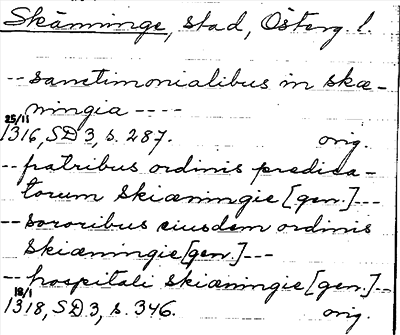 Skänninge, stad, Österg. l.
-- sanctimonialibus in skæ-
ningia ----
25/11
1316, SD 3, s. 287. orig.
-- fratribus ordinis predica-
torum skiæningie [gen.]---
-- sororibus eiusdem ordinis
skiæningie [gen.]---
-- hospitali skiæningie [gen.]--
18/1
1318, SD 3, s. 346. orig.